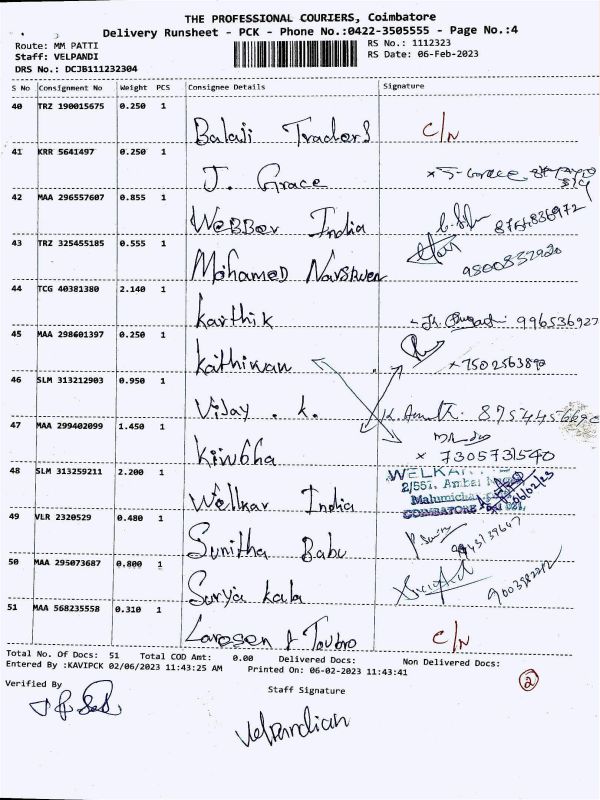 THE PROFESSIONAL COURIERS, Coimbatore
Delivery Runsheet - PCK - Phone No.:0422-3505555 - Page No.:4
Route: MM PATTI RS No.: 1112323
Staff: VELPANDI RS Date: 06-Feb-2023
DRS No.: DCJB111232304
S No Consignment No Weight PCS Consignee Details Signature
40 TRZ 190015675 0.250 1
Balaji Traders C/N
41 KRR 5641497 0.250 1
J. Grace x J- Grace
42 MAA 296557607 0.855 1
Webber India 8754836972
43 TRZ 325455185 0.555 1
Mohamed 9500832920
44 TCG 40381380 2.140 1
Karthik 996536927
45 MAA 298601397 0.250 1
Kathiravan x 7502563890
46 SLM 313212903 0.950 1
Vijay . K.
47 MAA 299402099 1.450 1
Kirubha x 7305731540
48 SLM 313259211 2.200 1
Welkar India
2/551,
COIMBATORE
06/02/23
49 VLR 2320529 0.480 1
Sunitha Babu
50 MAA 295073687 0.800 1
Surya Kala
51 MAA 568235558 0.310 1
Larosen & Toubro C/N
Total No. Of Docs: 51 Total COD Amt: 0.00 Delivered Docs: Non Delivered Docs:
Entered By :KAVIPCK 02/06/2023 11:43:25 AM Printed On: 06-02-2023 11:43:41
2
Verified By
Staff Signature
Velpandian